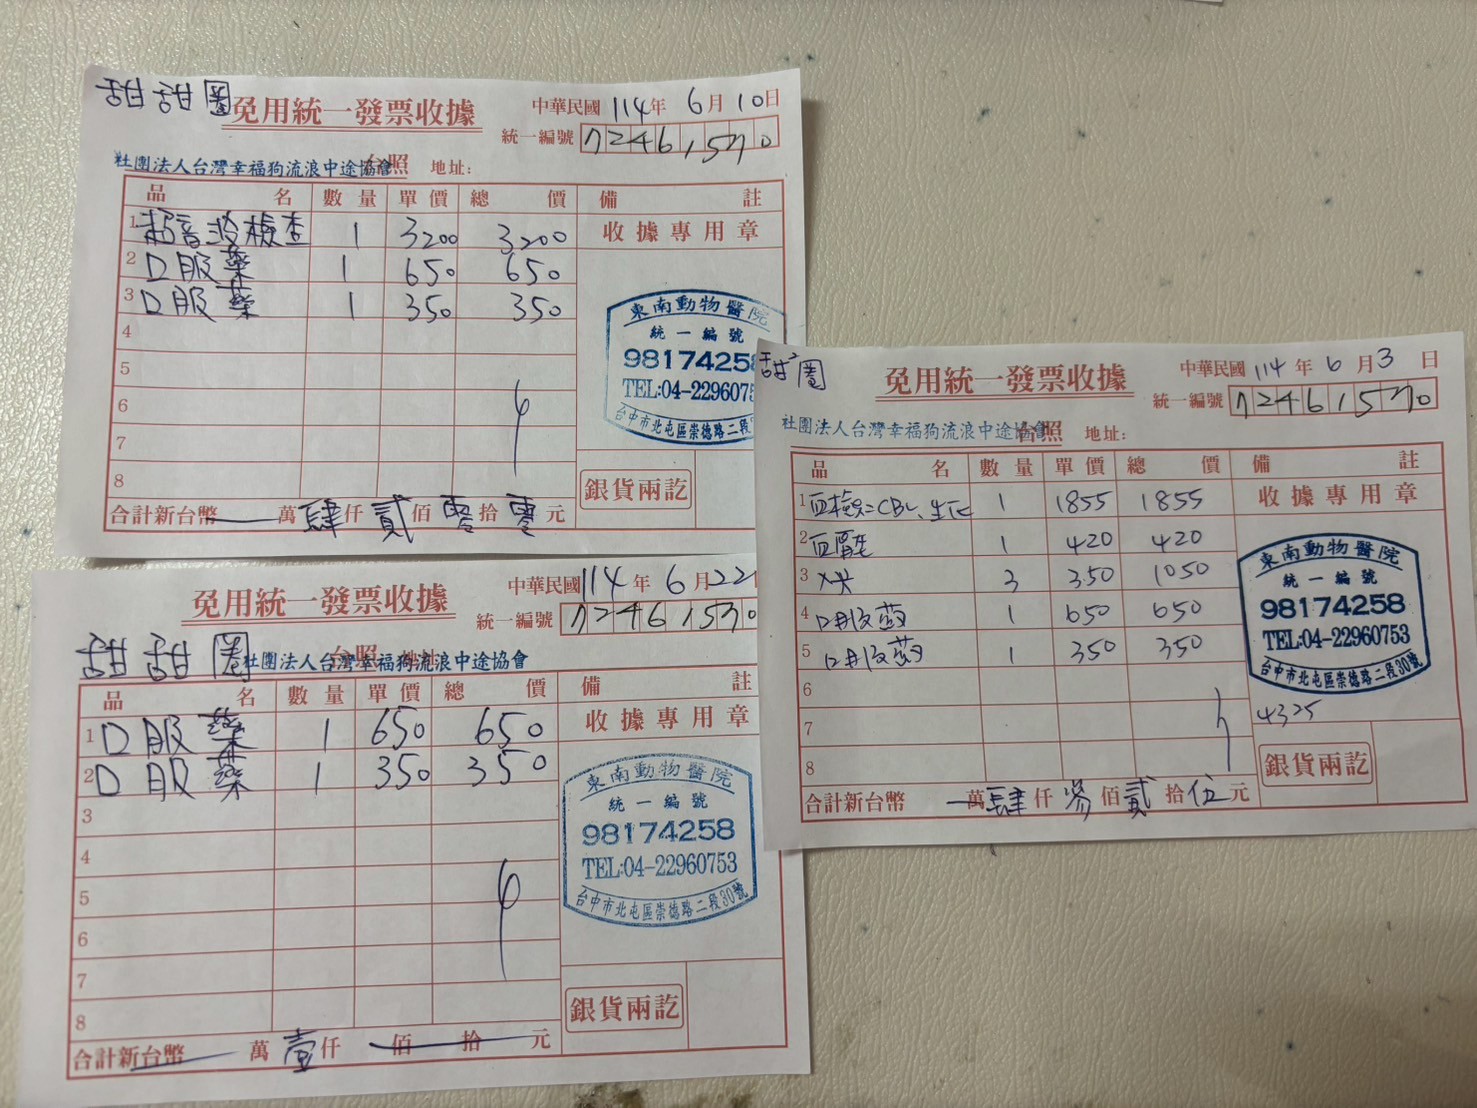 甜甜圈
免用統一發票收據
中華民國114年6月10日
統一編號 72461570
社團法人台灣幸福狗流浪中途協會
台照 地址:
品名 數量 單價 總價 備註
1 超音波檢查 1 3200 3200 收據專用章
2 口服藥 1 650 650
3 口服藥 1 350 350
4
5
6
7
8
東南動物醫院
統一編號
9817425
TEL:04-229607
台中市北屯區崇德路二段
銀貨兩訖
合計新台幣 萬肆仟貳佰零拾零元
甜甜圈
免用統一發票收據
中華民國114年6月3日
統一編號 72461570
社團法人台灣幸福狗流浪中途協會
台照 地址:
品名 數量 單價 總價 備註
1 血檢:CBC、生化 1 1855 1855 收據專用章
2 420 420
3 X光 3 350 1050
4 口服药 1 650 650
5 口服药 1 350 350
6
7
8
東南動物醫院
統一編號
98174258
TEL:04-22960753
台中市北屯區崇德路二段30號
4325
銀貨兩訖
合計新台幣 萬肆仟參佰貳拾伍元
免用統一發票收據
中華民國114年6月22
統一編號 72461570
甜甜圈
社團法人台灣幸福狗流浪中途協會
台照
品名 數量 單價 總價 備註
1 口服藥 1 650 650 收據專用章
2 口服藥 1 350 350
3
4
5
6
7
8
東南動物醫院
統一編號
98174258
TEL:04-22960753
台中市北屯區崇德路二段30號
銀貨兩訖
合計新台幣 萬壹仟 佰 拾 元